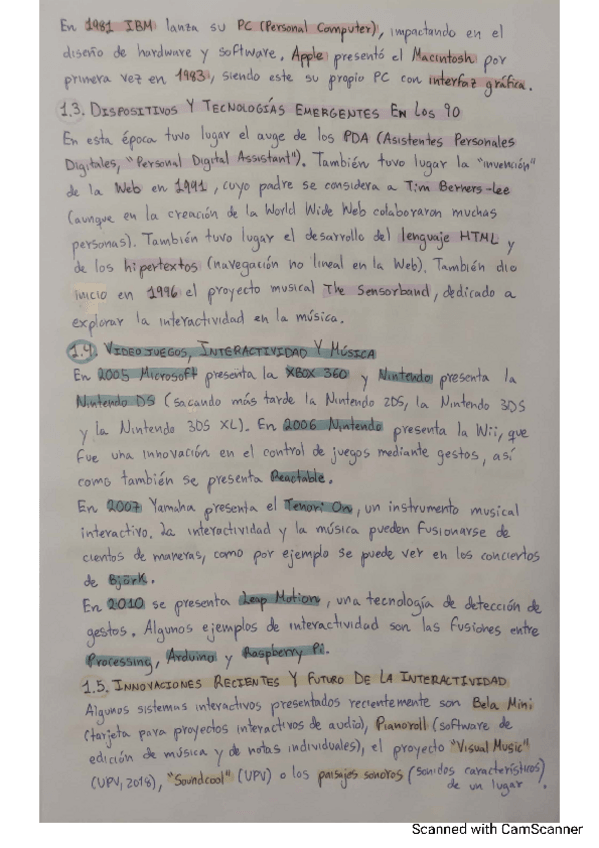 En 1981 IBM lanza su PC (Personal Computer), impactando en el
diseño de hardware y software. Apple presentó el Macintosh por
primera vez en 1983, siendo este su propio PC con interfaz gráfica.
1.3. DISPOSITIVOS Y TECNOLOGÍAS EMERGENTES EN LOS 90
En esta época tuvo lugar el auge de los PDA (Asistentes Personales
Digitales, "Personal Digital Assistant"). También tuvo lugar la "invención"
de la Web en 1991, cuyo padre se considera a Tim Berners-lee
(aunque en la creación de la World Wide Web colaboraron muchas
personas). También tuvo lugar el desarrollo del lenguaje HTML y
de los hipertextos (navegación no lineal en la Web). También dio
inicio en 1996 el proyecto musical The Sensorband, dedicado a
explorar la interactividad en la música.
1.4. VIDEOJUEGOS, INTERACTIVIDAD Y MÚSICA
En 2005 Microsoft presenta la XBOX 360 y Nintendo presenta la
Nintendo DS (sacando más tarde la Nintendo 2DS, la Nintendo 3DS
y la Nintendo 3DS XL). En 2006 Nintendo presenta la Wii, que
fue una innovación en el control de juegos mediante gestos, así
como también se presenta Reactable.
En 2007 Yamaha presenta el Tenori On, un instrumento musical
interactivo. La interactividad y la música pueden fusionarse de
cientos de maneras, como por ejemplo se puede ver en los conciertos
de Björk.
En 2010 se presenta Leap Motion, una tecnología de detección de
gestos. Algunos ejemplos de interactividad son las fusiones entre
Processing, Arduino y Raspberry Pi.
1.5. INNOVACIONES RECIENTES Y FUTURO DE LA INTERACTIVIDAD
Algunos sistemas interactivos presentados recientemente son Bela Mini
(tarjeta para proyectos interactivos de audio), Pianoroll (software de
edición de música y de notas individuales), el proyecto "Visual Music"
(UPV, 2018), "Soundcool" (UPV) o los paisajes sonoros (sonidos característicos
de un lugar).
Scanned with CamScanner